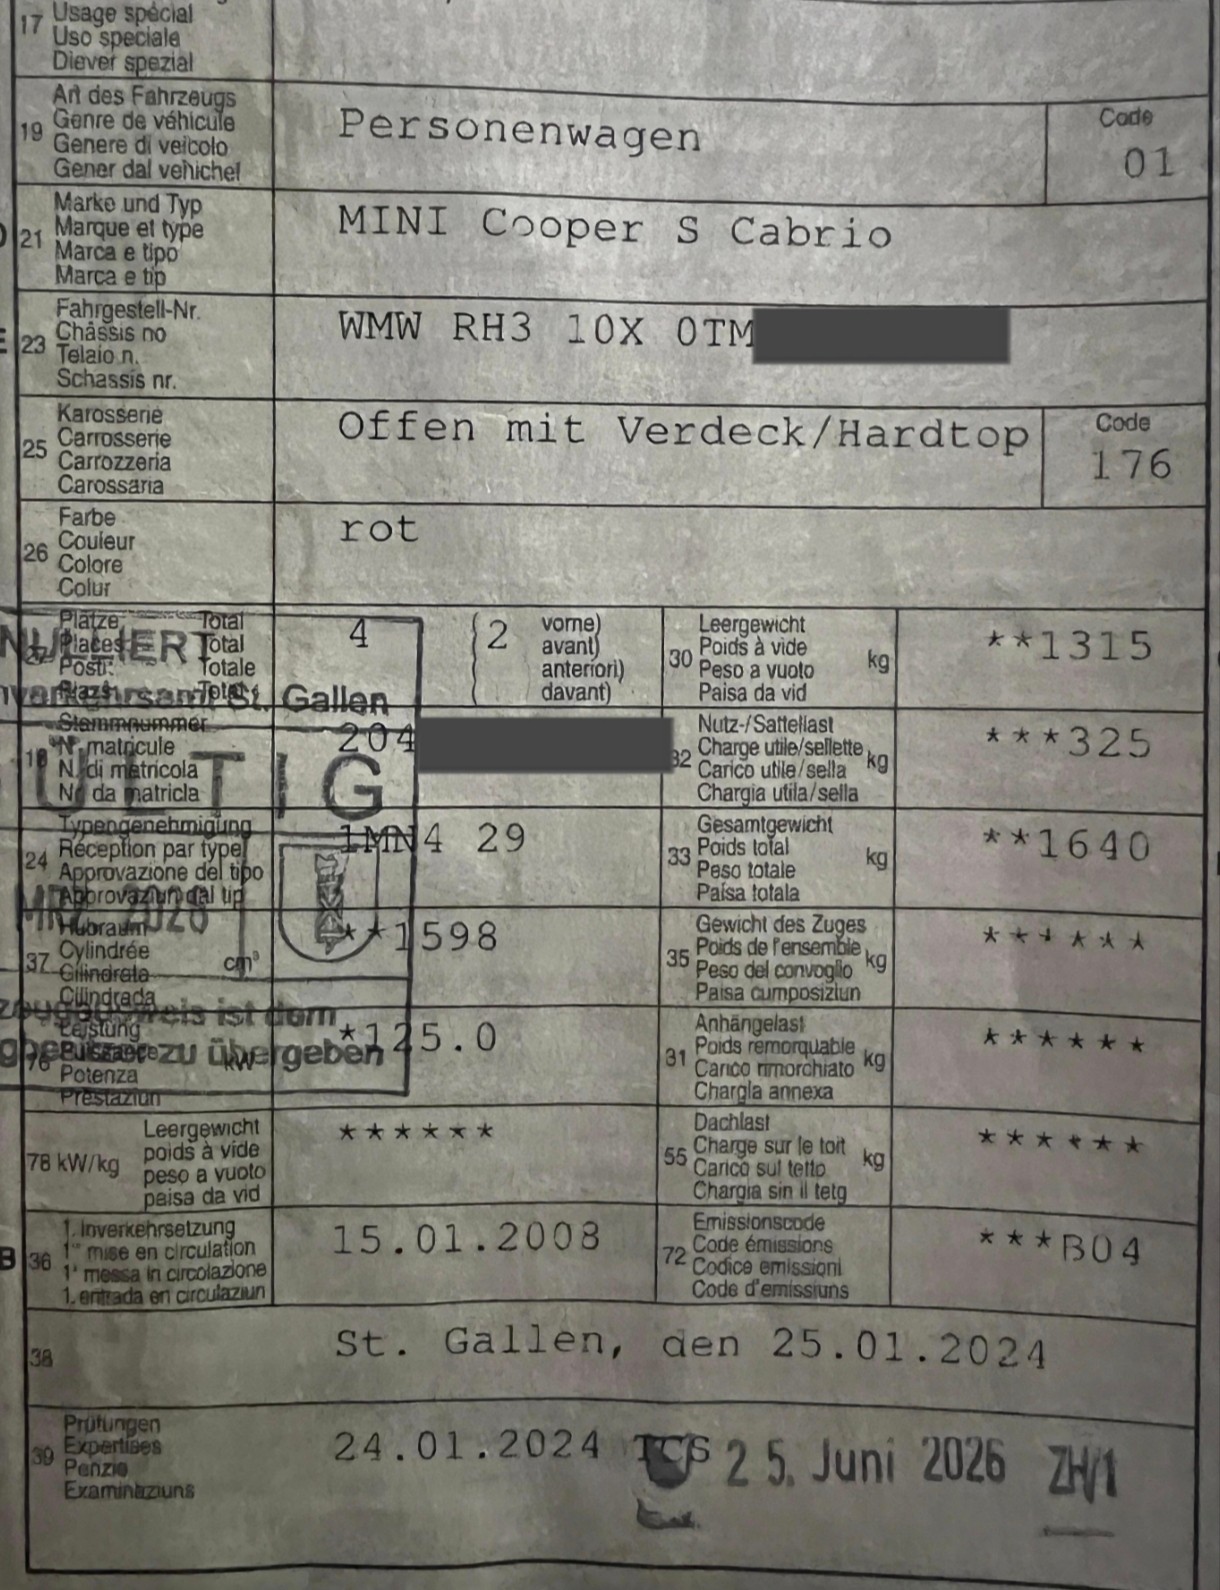 17 Usage spécial
Uso speciale
Diever spezial
19 Art des Fahrzeugs
Genre de véhicule
Genere di veicolo
Gener dal vehichel
Personenwagen
Code
01
21 Marke und Typ
Marque et type
Marca e tipo
Marca e tip
MINI Cooper S Cabrio
23 Fahrgestell-Nr.
Châssis no
Telaio n.
Schassis nr.
WMW RH3 10X 0TM
25 Karosserie
Carrosserie
Carrozzeria
Carossaria
Offen mit Verdeck/Hardtop
Code
176
26 Farbe
Couleur
Colore
Colur
rot
Plätze Total
Places Total
Posti Totale
Plazs Total
4
(2 vorne)
avant)
anteriori)
davant)
30 Leergewicht
Poids à vide
Peso a vuoto
Paisa da vid
kg
**1315
St. Gallen
18 Stammnummer
N° matricule
N. di matricola
Nr. da matricla
204
ULTIG
32 Nutz-/Sattellast
Charge utile/sellette
Carico utile/sella
Chargia utila/sella
kg
***325
24 Typengenehmigung
Réception par type
Approvazione del tipo
Approvaziun dal tip
1MN4 29
33 Gesamtgewicht
Poids total
Peso totale
Paisa totala
kg
**1640
MRZ. 2026
37 Hubraum
Cylindrée
Cilindrata
Cilindrada
cm³
**1598
35 Gewicht des Zuges
Poids de l'ensemble
Peso del convoglio
Paisa cumposiziun
kg
******
ist dem
zu übergeben
76 Leistung
Puissance
Potenza
Prestaziun
kW
*125.0
31 Anhängelast
Poids remorquable
Carico rimorchiato
Chargia annexa
kg
******
78 kW/kg
Leergewicht
poids à vide
peso a vuoto
paisa da vid
******
55 Dachlast
Charge sur le toit
Carico sul tetto
Chargia sin il tetg
kg
******
B 36 1. Inverkehrsetzung
1re mise en circulation
1a messa in circolazione
1. entrada en circulaziun
15.01.2008
72 Emissionscode
Code émissions
Codice emissioni
Code d'emissiuns
***B04
38
St. Gallen, den 25.01.2024
39 Prüfungen
Expertises
Perizie
Examinaziuns
24.01.2024 TCS 25. Juni 2026 ZH/1